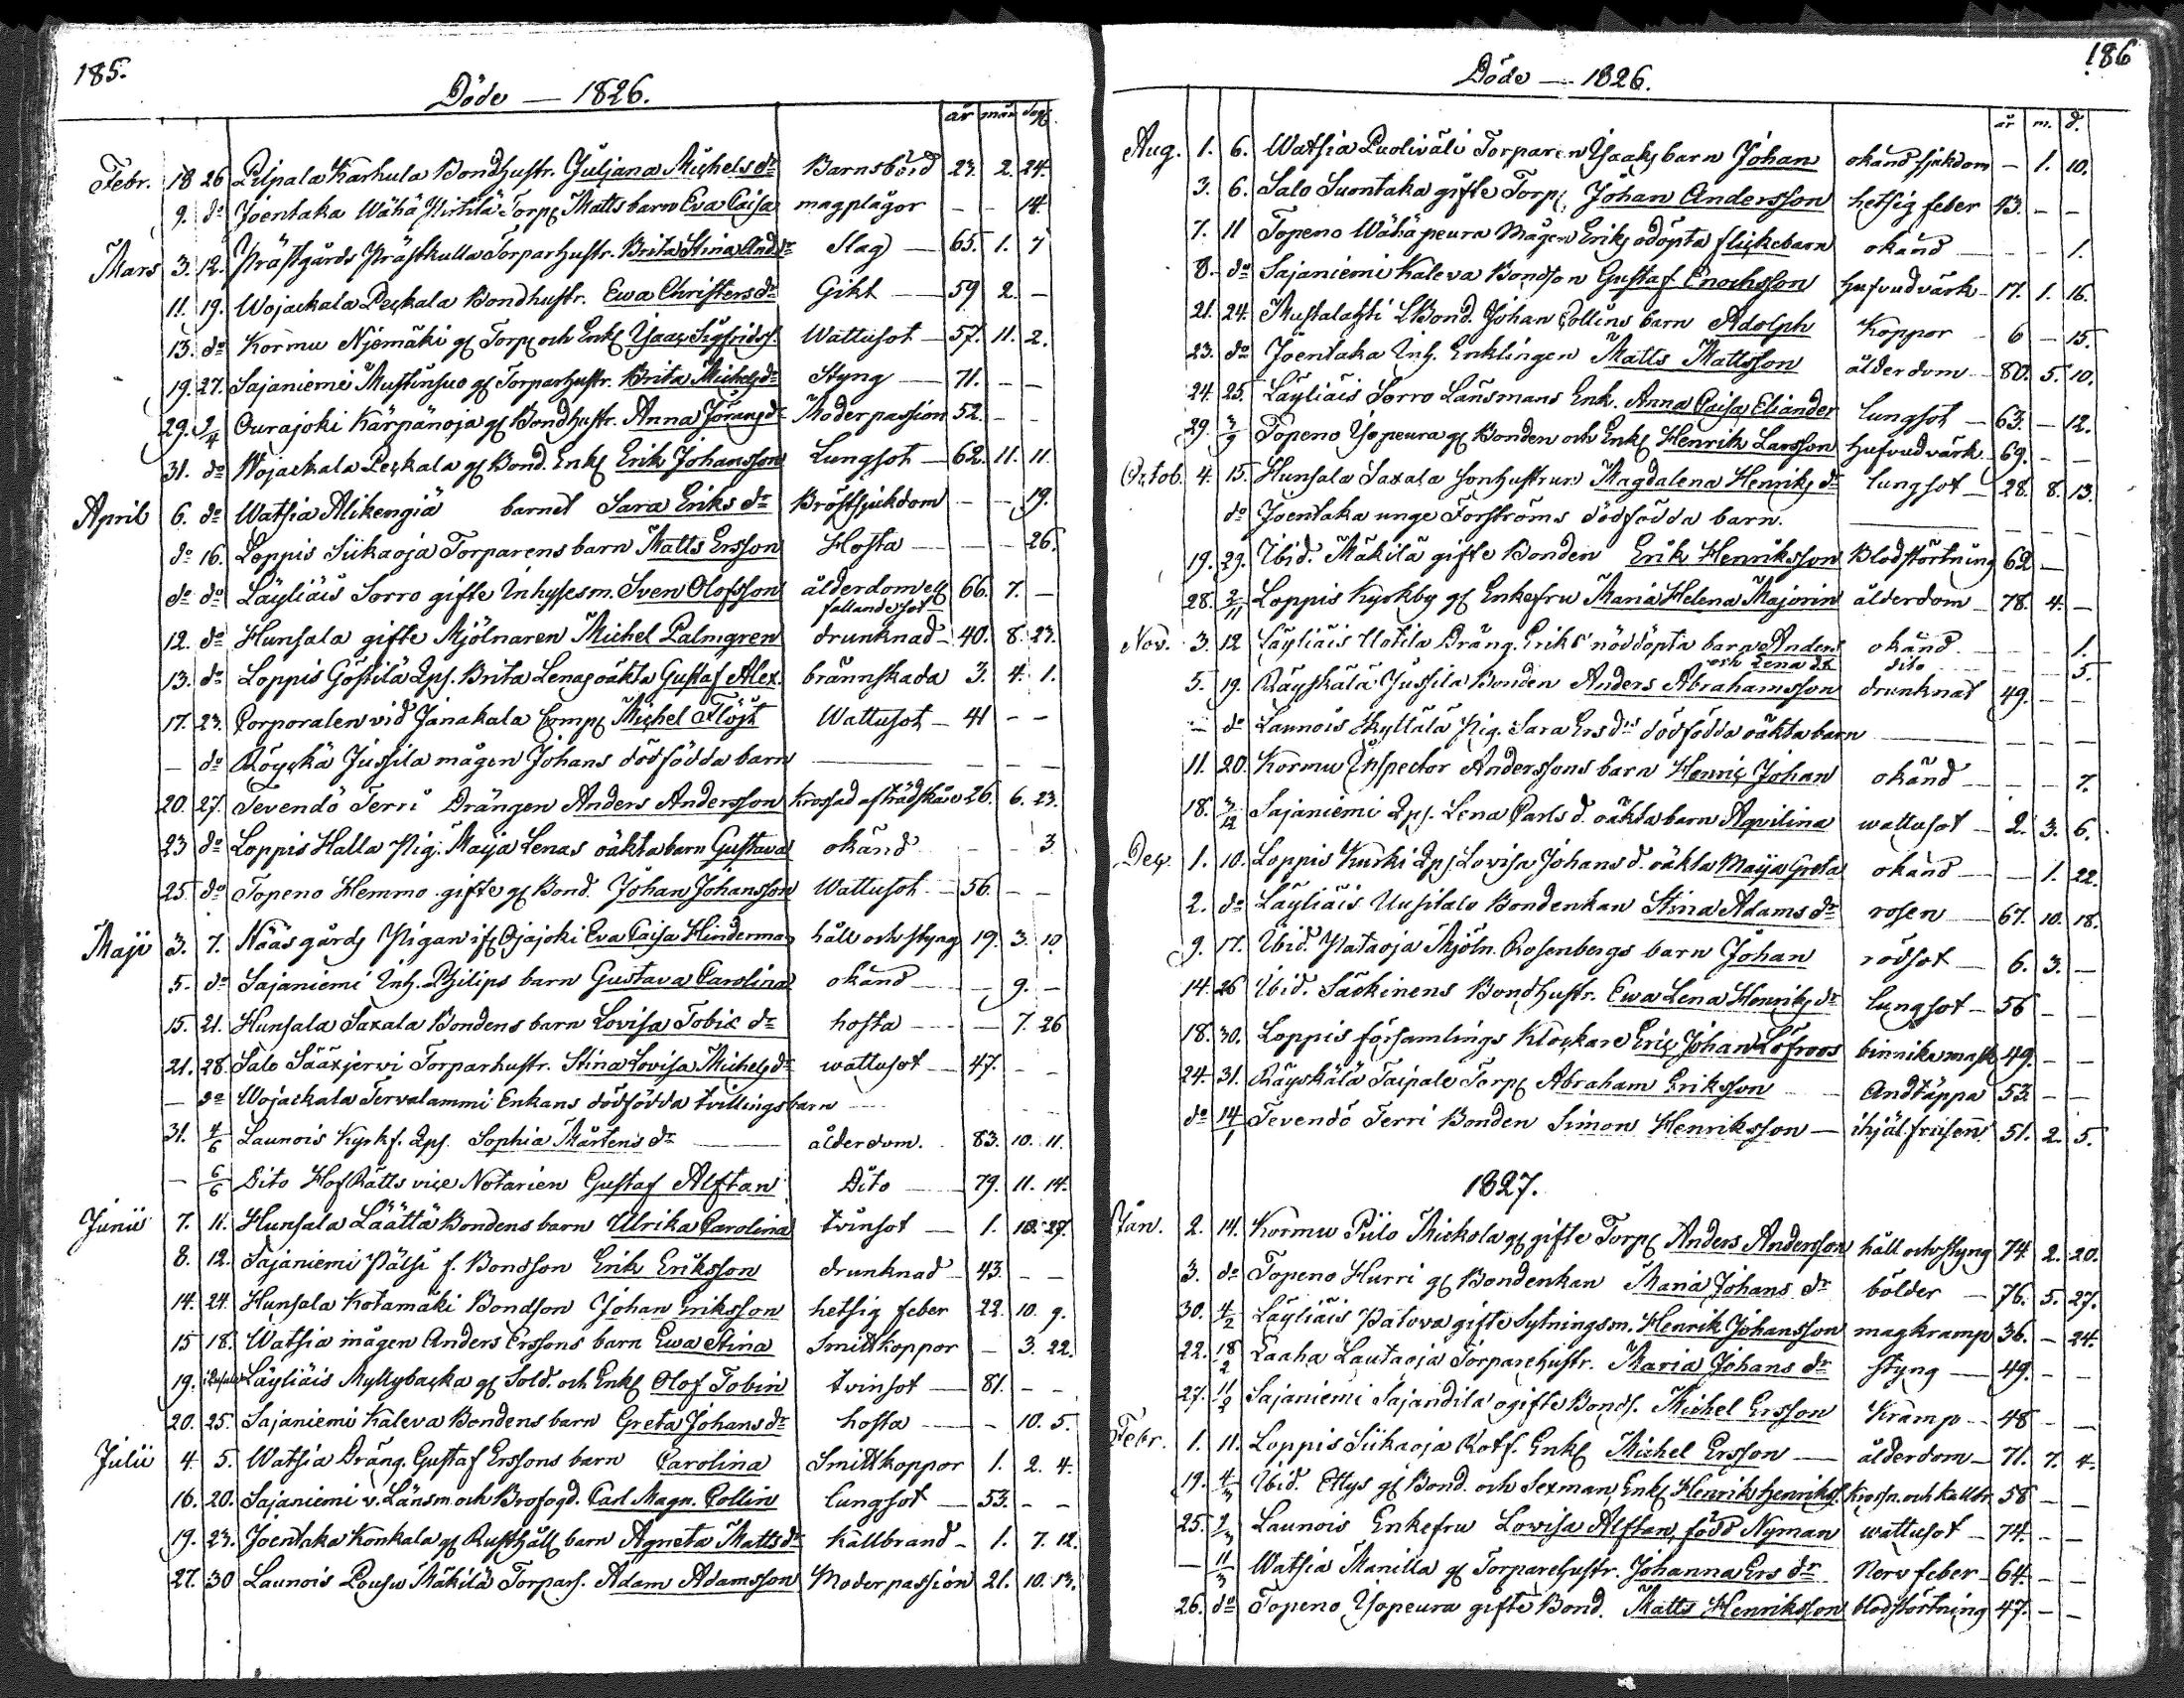 185.
Döde — 1826.
år mån dag.
Febr. 18 26 Pilpala Karhula Bondhustr. Juljana Michels dr Barnsbörd 23. 2. 24.
9. do Joentaka Wähä Pirtilä Torp. Matts barn Eva Caisa magplågor – – 14.
Mars 3. 12. Prästgårds Prästkulla Torparhustr. Brita Stina And.dr Slag — 65. 1. 7
11. 19. Wojackala Peckala Bondhustr. Ewa Christersdr Gikt — 59 2. –
13. do Kormu Njemäki gl Torp. och Enkl Isaac Sigfridss. Wattusot — 57. 11. 2.
19. 27. Sajaniemi Mustinsuo gl Torparhustr. Brita Michelsdr Styng — 71. – –
29. 2/4 Ourajoki Kärpänoja gl Bondhustr. Anna Jöransdr Moderpassion 52. – –
31. do Wojackala Peckala gl Bond. Enkl Erik Johansson Lungsot — 62. 11. 11.
April 6. do Watsia Alikengiä barnet Sara Eriks dr Bröstsjukdom – – 19.
do 16. Loppis Siikaoja Torparens barn Matts Ersson Hosta — – – 26.
do do Läyliäis Sorro gifte Inhysesm. Sven Olofsson ålderdom ell fallandesot 66. 7. –
12. do Hunsala gifte Mjölnaren Michel Palmgren drunknad — 40. 8. 23.
13. do Loppis Göstilä Qps. Brita Lenas oäkta Gustaf Alex. brännskada 3. 4. 1.
17. 23. Corporalen vid Janakala Comp. Michel Flöjt Wattusot — 41 – –
— do Röyckä Jussila mågen Johans dödfödda barn — – – –
20. 27. Tevendö Terri Drängen Anders Andersson krossad af trädstäre 26. 6. 23.
23 do Loppis Halla Pig. Maija Lenas oäkta barn Gustava okänd – – 3
25. do Topeno Hemmo gifte gl Bond. Johan Johansson Wattusot — 56. – –
Maji 3. 7. Nääs gårds Pigan ifr Ojajoki Eva Caisa Hinderman håll och styng 19. 3. 10
5. do Sajaniemi Inh. Philips barn Gustava Carolina okänd — – 9. –
15. 21. Hunsala Saxala Bondens barn Lovisa Tobiæ dr hosta — – 7. 26
21. 28. Salo Sääxjervi Torparhustr. Stina Lovisa Michelsdr wattusot — 47. – –
— do Wojackala Tervalammi Enkans dödfödda tvillingsbarn
31. 4/6 Launois Kyrkf. Qps. Sophia Mårtens dr — ålderdom. 83. 10. 11.
— 6/6 Dito HofRätts vice Notarien Gustaf Alftan Dito — 79. 11. 14.
Junii 7. 11. Hunsala Läättä Bondens barn Ulrika Carolina tvinsot — 1. 10. 27.
8. 12. Sajaniemi Pälsi f. Bondson Erik Eriksson drunknad — 43. – –
14. 24. Hunsala Kotamäki Bondson Johan Eriksson hetsig feber 22. 10. 9.
15 18. Watsia mågen Anders Erssons barn Ewa Stina Smittkoppor – 3. 22.
19. Läyliäis Myllybacka gl Sold. och Enkl Olof Tobin tvinsot — 81. – –
20. 25. Sajaniemi Kaleva Bondens barn Greta Johansdr hosta — – 10. 5.
Julii 4. 5. Watsia Dräng. Gustaf Erssons barn Carolina Smittkoppor 1. 2. 4.
16. 20. Sajaniemi v. Länsm. och Brofogd. Carl Magn. Collin lungsot — 53. – –
19. 23. Joentaka Konkala gl Rusthåll. barn Agneta Mattsdr Kallbrand – 1. 7. 12.
27. 30 Launois Pousu Mäkilä Torpars. Adam Adamsson Moderpassion 21. 10. 13.
186
Döde — 1826.
år m. d.
Aug. 1. 6. Watsia Puoliväli Torparen Isaacs barn Johan okänd sjukdom – 1. 10.
3. 6. Salo Suontaka gifte Torp. Johan Andersson hetsig feber 43. – –
7. 11 Topeno Wähäpeura Mågen Eriks odöpta flickebarn okänd — – – 1.
8. do Sajaniemi Kaleva Bondson Gustaf Enochsson hufvudvärk 17. 1. 16.
21. 24. Mustalahti LBond. Johan Collins barn Adolph Koppor – 6 – 15.
23. do Joentaka Inh. Enklingen Matts Mattsson ålderdom — 80. 5. 10.
24. 25. Läyliäis Sorro Länsmans Enk. Anna Caisa Eliander lungsot — 63. – 12.
29. 3/9 Topeno Yöpeura gl Bonden och Enkl Henrik Larsson hufvudvärk 69. – –
Octob. 4. 15. Hunsala Saxala Sonhustrun Magdalena Henriks dr lungsot — 28. 8. 13.
do Joentaka unge Forströms dödfödda barn. — – – –
19. 29. Ibid. Mäkilä gifte Bonden Erik Henriksson Blodstörtning 62 –
28. 2/11 Loppis Kyrkby gl Enkefru Maria Helena Majorin ålderdom — 78. 4. –
Nov. 3. 12 Läyliäis Uotila Dräng. Eriks nöddöpta barn Anders okänd – – 1.
och Lena dr dito – – 5.
5. 19. Räyskälä Jussila Bonden Anders Abrahamsson drunknat 49. – –
— do Launois Skyttälä Pig. Sara Ers drs dödfödda oäkta barn — – – –
11. 20. Kormu Inspector Anderssons barn Henric Johan okänd — – – 7.
18. 3/12 Sajaniemi Qps. Lena Carls d. oäkta barn Aqvilina wattusot — 2. 3. 6.
Dec. 1. 10. Loppis Kurki Qps. Lovisa Johans d. oäkta Maija Greta okänd — – 1. 22.
2. do Läyliäis Uusitalo Bondenkan Stina Adams dr rosen — 67. 10. 18.
9. 17. Ibid. Pataoja Mjöln. Rosenbergs barn Johan rödsot — 6. 3. –
14. 26 Ibid. Säckinens Bondhustr. Ewa Lena Henriks dr lungsot — 56 – –
18. 30. Loppis församlings Klockare Eric Johan Löfroos binnikemask 49. – –
24. 31. Räyskälä Taipale Torp. Abraham Eriksson Andtäppa 53. – –
do 14/1 Tevendö Terri Bonden Simon Henriksson — ihjälfrusen 51. 2. 5.
1827.
Jan. 2. 14. Kormu Piilo Mickola gl gifte Torp. Anders Andersson håll och styng 74. 2. 20.
3. do Topeno Hurri gl Bondenkan Maria Johans dr bölder — 76. 5. 27.
30. 4/2 Läyliäis Patova gifte Sytningsm. Henrik Johansson magkramp 36. – 24.
22. 18/2 Laaha Lautaoja Torparehustr. Maria Johans dr styng — 49. – –
27. 11/2 Sajaniemi Sajandila ogifte Bonds. Michel Ersson Kramp — 48 – –
Febr. 1. 11. Loppis Siikaoja Rotf. Enkl Michel Ersson — ålderdom — 71. 7. 4.
19. 4/3 Ibid. Ettys gl Bond. och Sexman, Enkl Henrik Henrikss. Krossn. och Kallbr. 58 – –
25. 2/3 Launois Enkefru Lovisa Alftan, född Nyman wattusot — 74. – –
— 11/3 Watsia Manilla gl Torparehustr. Johanna Ers dr Nervfeber — 64. – –
26. do Topeno Yöpeura gifte Bond. Matts Henriksson blodstörtning 47. – –